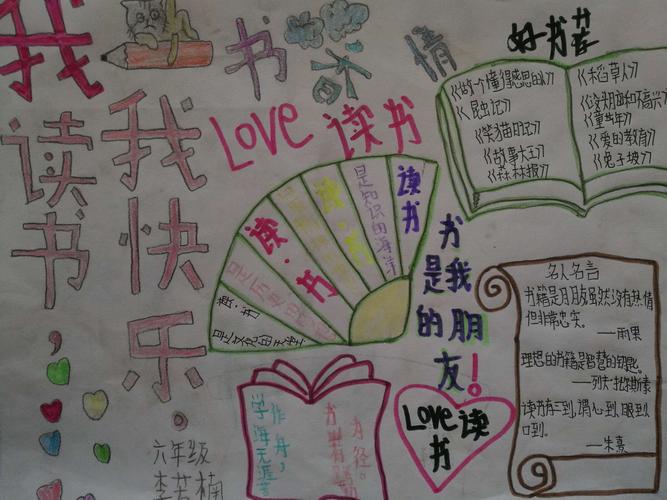 我读书，
我快乐。
书 情
Love 读书
好书荐
《做一个懂得感恩的人》
《昆虫记》
《笑猫日记》
《故事大王》
《森林报》
《稻草人》
《童年》
《爱的教育》
《兔子坡》
读书
是知识的海洋
读·书
读·书
读·书
书是我的朋友！
名人名言
书籍是朋友虽然没有热情
但非常忠实。
——雨果
理想的书籍是智慧的钥匙。
——列夫·托尔斯泰
读书有三到，谓心到，眼到
口到。
——朱熹
学海无涯苦
作舟，
为径。
Love读
书
六年级
李若楠